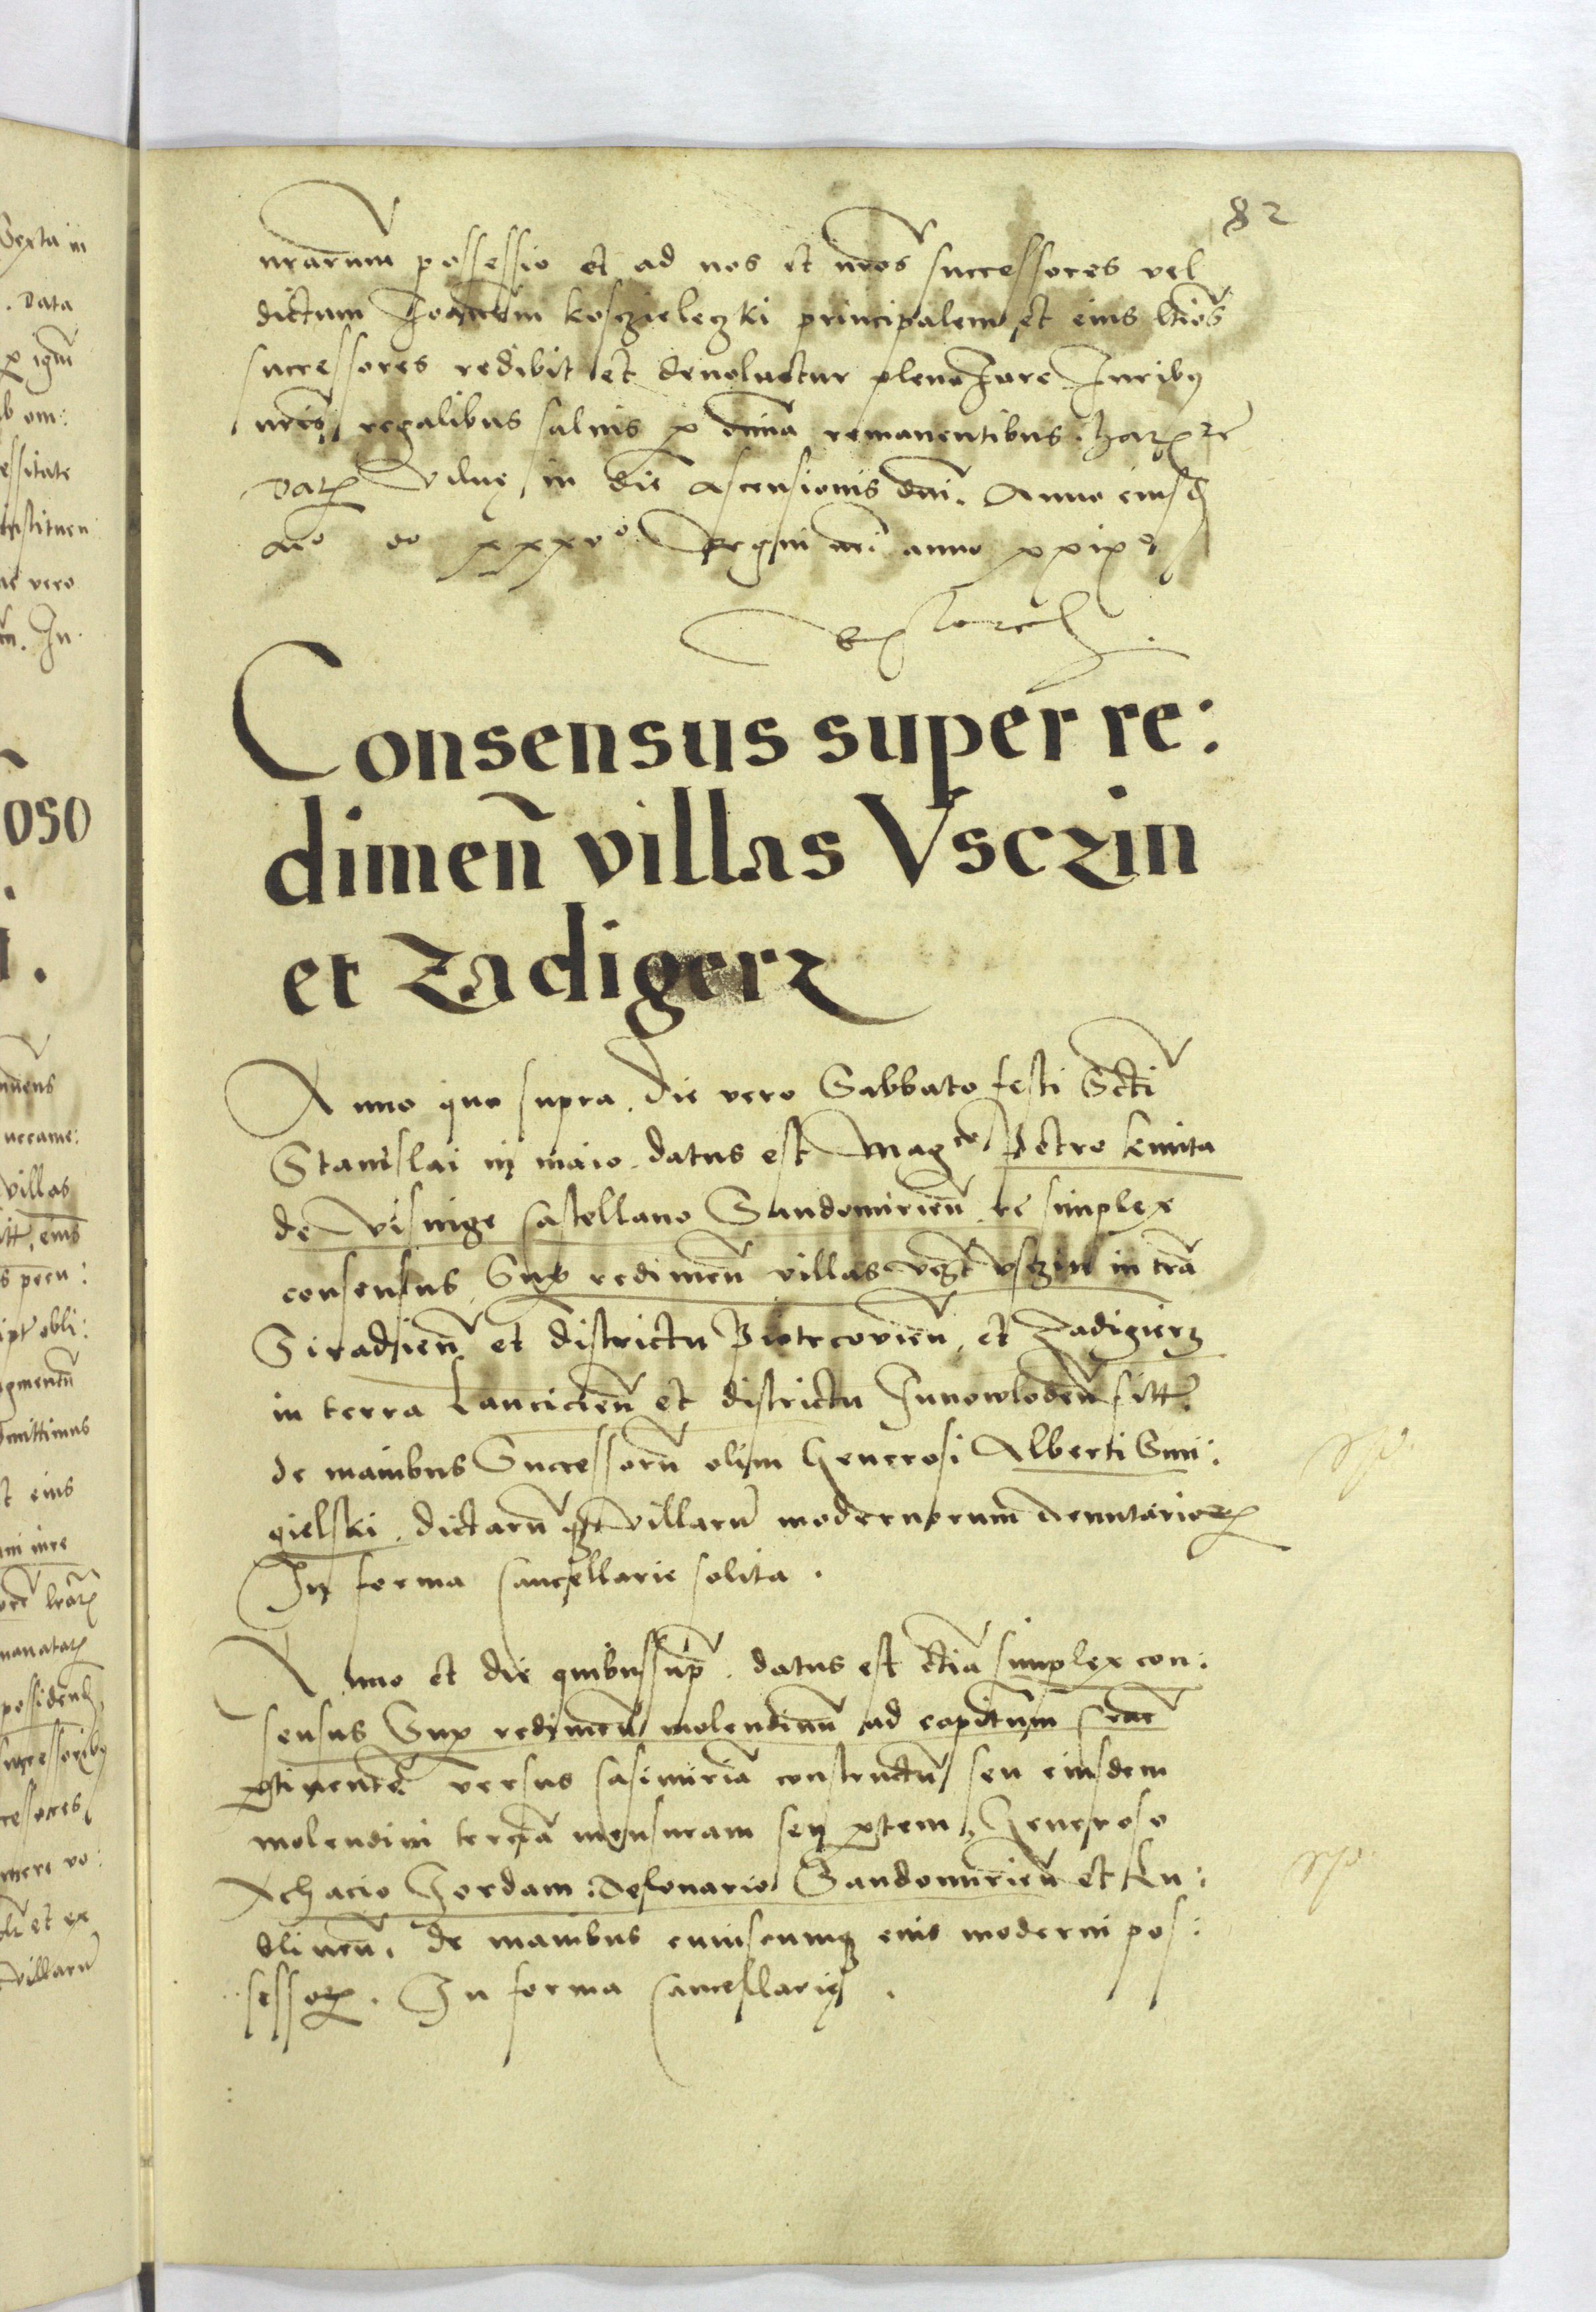 82
nrarum possessio et ad nos et nros successores vel
dictum Joannem kosczieleczki principalem et eius ltimos
successores redibit et devoluetur pleno Jure Juribus
nris regalibus salvis per omnia remanentibus. harum
Datum Vilne in die Ascensionis dni. Anno eiusdem
xxxvo Regni nri anno xxixo
Consensus super re:
dimen̄ villas Vsczin
et Zadigerz
Anno quo supra. die vero Sabbato festi Scti
Stanislai in maio. datus est Magco Petro kmita
de Visnige castellano Sandomirien̄ etc simplex
consensus Sup redimen̄ villas Vszczin in tra
Siradien̄ et districtu Piotrcovien̄, et Zadigierz
in terra Lancicien̄ et districtu Junowloden̄ sitt.
de manibus Successorū olim Generosi Alberti Smi:
gielski. dictarū villarū modernorum tenutariorum
In forma cancellarie solita.
Anno et die quibus supra. datus est etiā simplex con:
sensus Sup redimen̄ molendinū ad capitaneum Crac
ptinentē versus casimiriā constructū seu eiusdem
molendini terciā mensuram seu ptem, Generoso
Achacio Jordam: Sandomirien̄ et Lu:
blinen̄. de manibus cuiuscumq eius moderni pos:
sessorum. In forma cancellarie.
Sexta in
. Data
b om:
essitate
nstituen
ac vero
. In
oso
villas
eius
obli:
mittimus
t eius
ni iure
possidenti
cessores
mere vo:
et ex
villarū